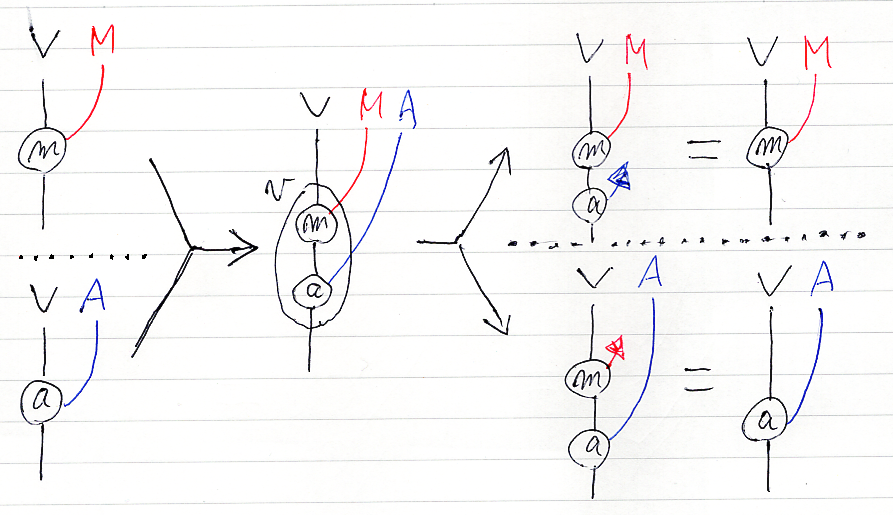 V M
m
V A
a
V M A
v
m
a
V M
m
a
=
V M
m
V A
m
a
=
V A
a